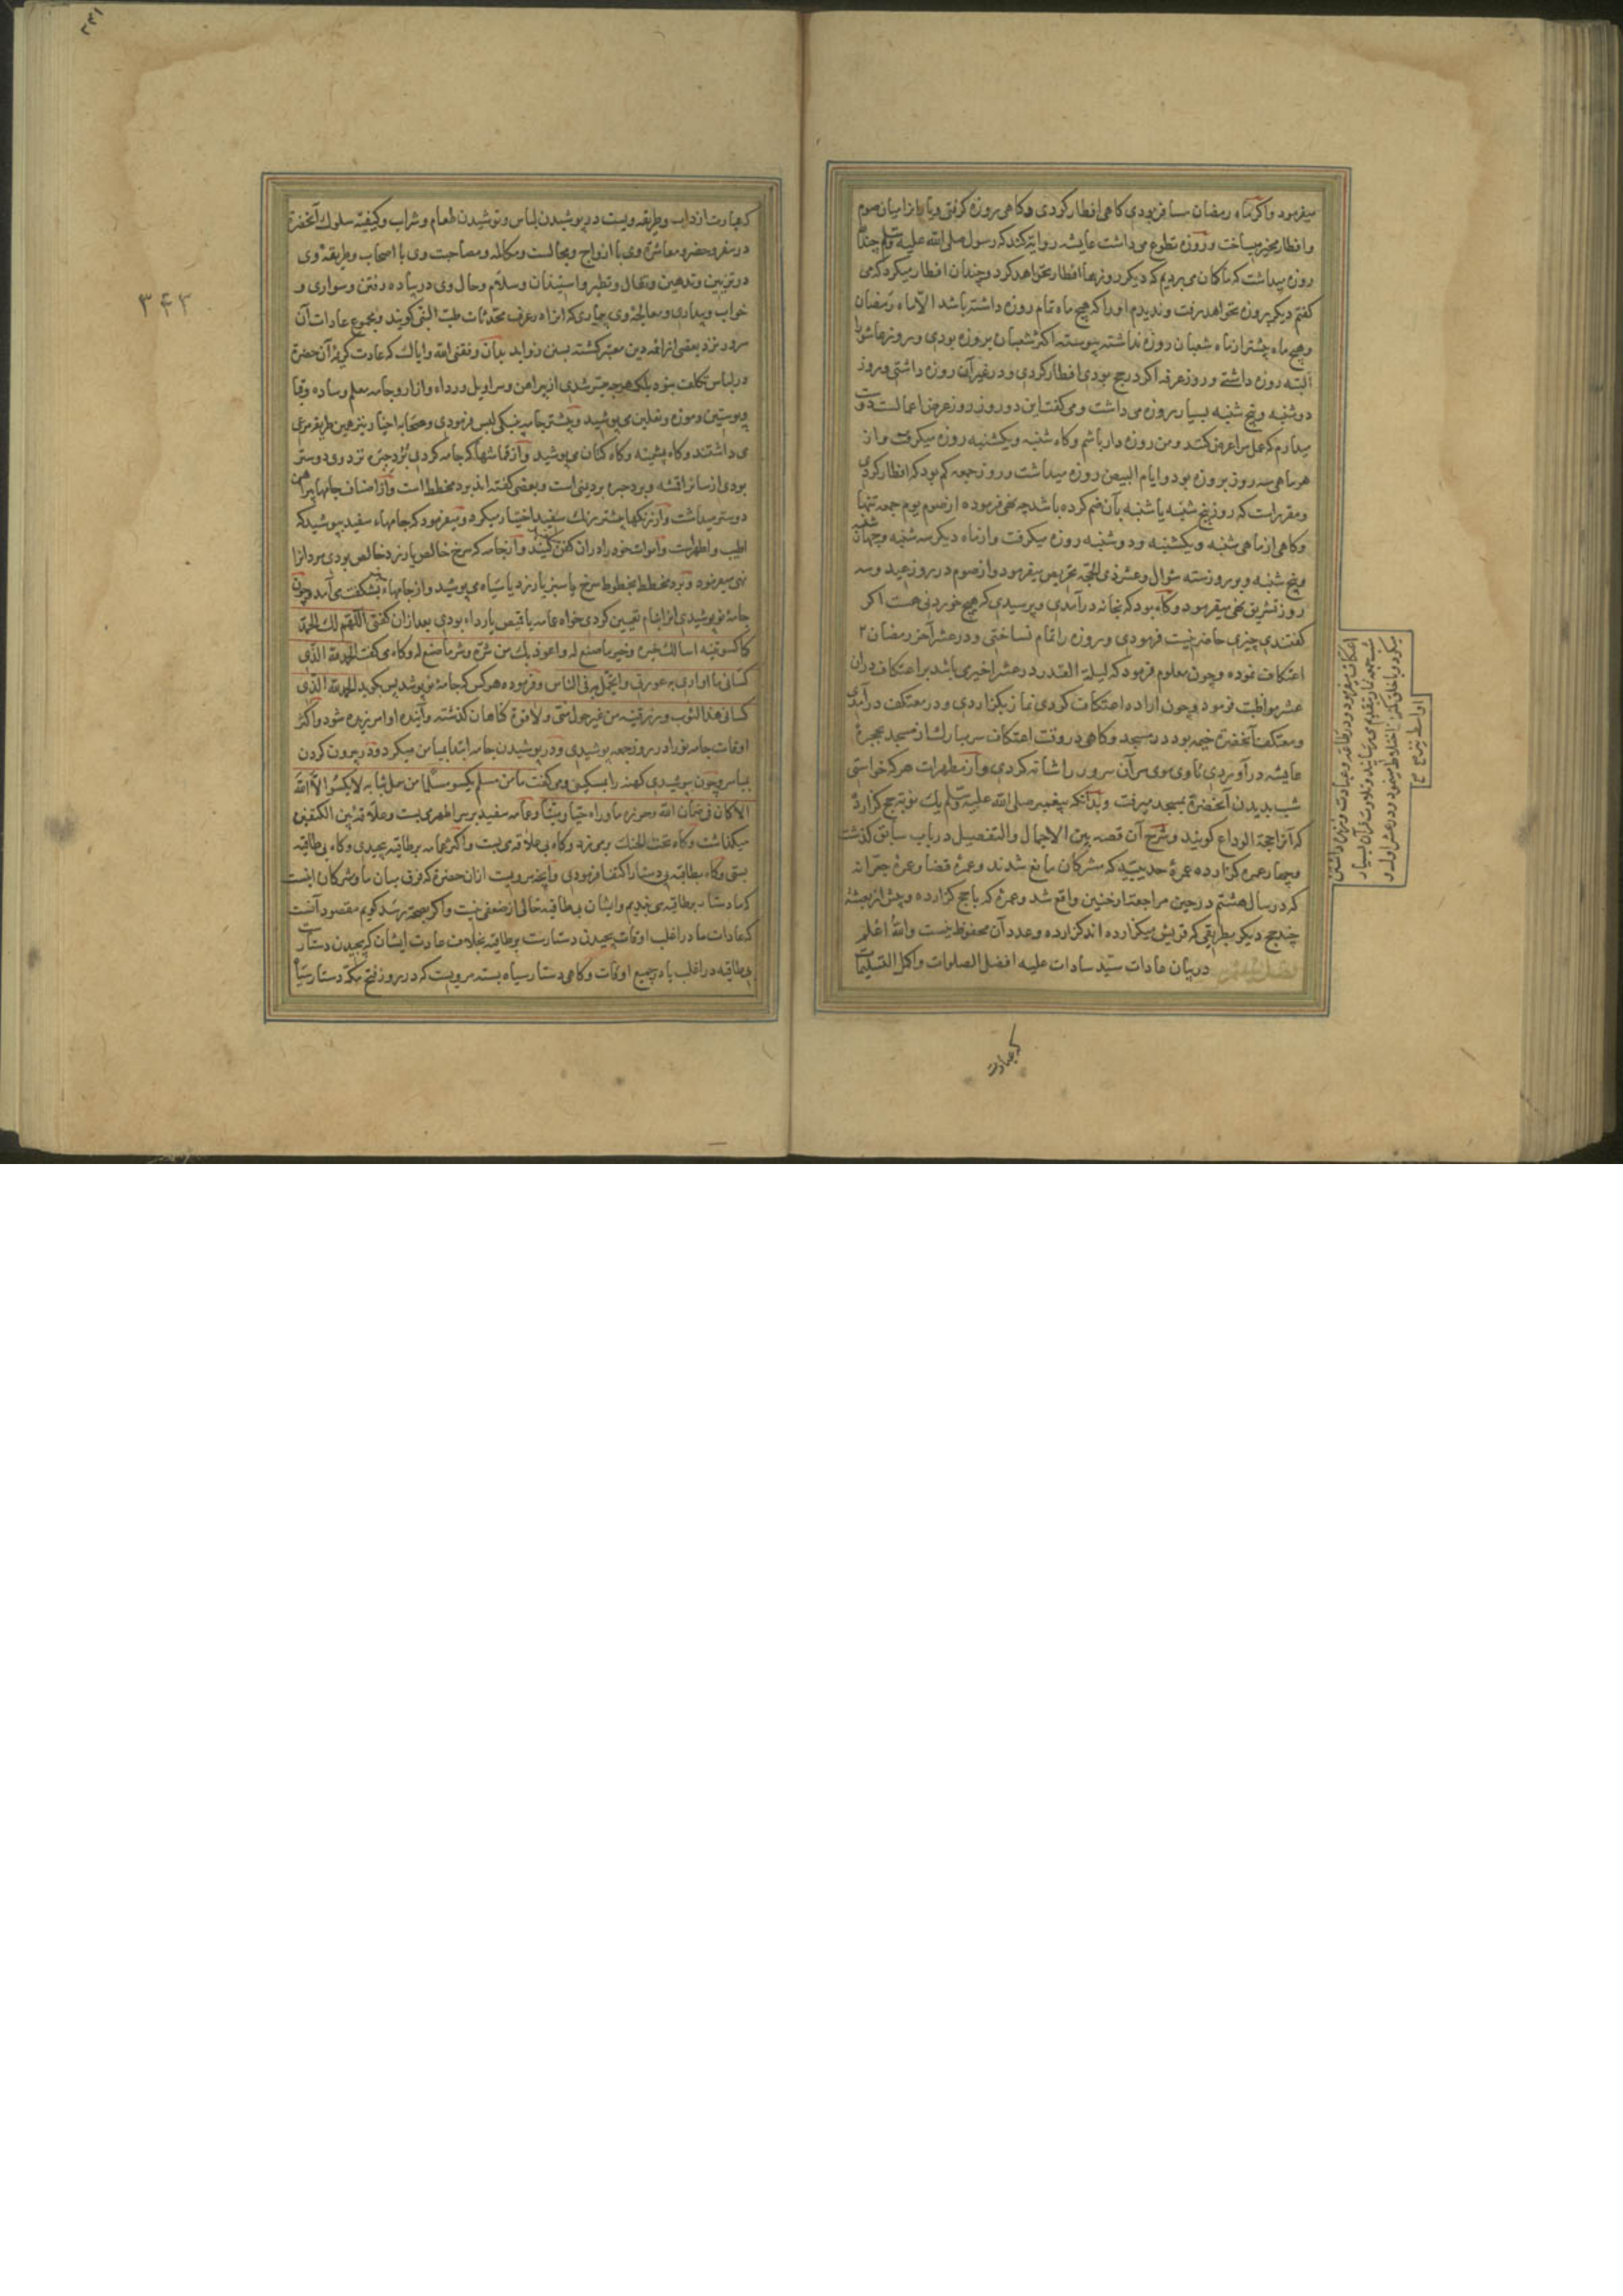 میفرمود واکر ماه رمضان مسافر بودی کاهی افطار کردی وکاهی روزه کرفتی ویارانرا میان صوم
وافطار مخیر میساخت وروزه تطوع می داشت عایشه روایة کند که رسول صلی الله علیه وسلم چندان
روزه میداشت که ما کان می بردیم که دیکر روزها افطار نخواهد کرد وچندان افطار میکرد که می
کفتم دیکر روزه نخواهد کرفت وندیدم اورا که هیچ ماه تمام روزه داشته باشد الا ماه رمضان
وهیچ ماه بیشتر از ماه شعبان روزه نداشته پیوسته اکثر شعبان بروزه بودی وروز عاشورا
البته روزه داشتی وروز عرفه اکر در حج بودی افطار کردی ودر غیر آن روزه داشتی وروز
دوشنبه وپنج شنبه بسیار روزه می داشت ومی کفت این دو روز روز عرض اعمالست دوست
میدارم که عمل مرا عرض کنند ومن روزه دار باشم وکاه شنبه ویکشنبه روزه میکرفت واز
هر ماهی سه روز بروزه بود وایام البیض روزه میداشت وروز جمعه کم بود که افطار کردی
ومقررات که روز پنج شنبه یا شنبه بآن ضم کرده باشد چه نهی فرموده از صوم یوم جمعه تنها
وکاهی از ماهی شنبه ویکشنبه ودوشنبه روزه میکرفت واز ماه دیکر سه شنبه وچهار شنبه
وپنج شنبه وبروزه سته شوال وعشر ذی الحجه تحریص میفرمود واز صوم در روز عید وسه
روز تشریق نهی میفرمود وکاه بود که بخانه در آمدی وپرسیدی که هیچ خوردنی هست اکر
کفتندی چیزی حاضر نیست فرمودی وروزه را تمام نساختی ودر عشر آخر رمضان
اعتکاف نموده وچون معلوم فرمود که لیلة القدر در عشر اخیر می باشد بر اعتکاف دران
عشر مواظبت نمود وچون اراده اعتکاف کردی نماز بکزاردی ودر معتکف در آمدی
ومعتکف آنحضرة خیمه بود در مسجد وکاهی در وقت اعتکاف سر مبارک از مسجد بحجره
عایشه در آوردی تا وی موی سر آن سرور را شانه کردی واز مطهرات هر که خواستی
شب بدیدن آنحضرة بمسجد میرفت وبدانکه پیغمبر صلی الله علیه وسلم یک نوبت حج کزارده
که آنرا حجة الوداع کویند وشرح آن قصه بین الاجمال والتفصیل در باب سابق کذشت
وچهار عمره کزارده عمرهٔ حدیبیه که مشرکان مانع شدند وعمرهٔ قضا وعمرهٔ جعرانه
که در سال هشتم در حین مراجعة از حنین واقع شد وعمره که با حج کزارده وپیش از بعثة
چند حج دیکر بطریقی که قریش میکزارده اند کزارده وعدد آن محفوظ نیست والله اعلم
در بیان عادات سید سادات علیه افضل الصلوات واکمل التسلیمات
اواسط نیز صح
که عبارت
که عبارت از داب وطریقه ویست در پوشیدن لباس ونوشیدن طعام وشراب وکیفیة سلوک آنحضرة
در سفر وحضر ومعاشرة وی با ازواج ومجالست ومکالمه ومصاحبت وی با اصحاب وطریقهٔ وی
در تزیین وتدهین وتکحال وتطیر واستیذان وسلام وحال وی در پیاده رفتن وسواری و
خواب وبیداری ومعالجهٔ وی بیماری که انرا در عرف محدثان طب النبی کویند ومجموع عادات آن
سرور نزد بعضی از ائمه دین معبر کشته بسنن زواید بدان وفقنی الله وایاک که عادت کریمهٔ آن حضرة
در لباس تکلف نبوده بلکه هر چه میسر شدی از پیراهن وسراویل ورداء وازار وجامه معلم وساده وقبا
وپوستین وموزه ونعلین می پوشید وبیشتر جامه پنبکی لبس فرمودی وصحابه اخیار نیز همین طریقه مرعی
می داشتند وکاه پشینه وکاه کتان می پوشید وازقماشها که جامه کردی برد حبره نزد وی دوستر
بودی از سائر اقمشه وبرد حبره برد یمنی است وبعضی کفته اند برد مخطط است واز اصناف جامها پیراهن
دوستر میداشت واز رنکها بیشتر رنک سفید اختیار میکرد ومیفرمود که جامهاء سفید بپوشید که
اطیب واطهرست واموات خود را در ان کفن کنید وآنجامه که سرخ خالص یا زرد خالص بودی مردانرا
نهی میفرمود وبرد مخطط بخطوط سرخ یا سبز یا زرد یا سیاه می پوشید واز جامهاء بشکفت می آمد وچون
جامهٔ نو پوشیدی انرا بنام تعیین کردی خواه عمامه یا قمیص یا رداء بودی بعد ازان کفتی اللهم لک الحمد
کما کسوتنیه اسالک خیره وخیر ما صنع له واعوذ بک من شره وشر ما صنع له وکاه می کفت الحمد لله الذی
کسانی ما اواری به عورتی واتجمل به فی الناس وفرموده هر کس که جامهٔ نو پوشد پس بکوید الحمد لله الذی
کسانی هذا الثوب ورزقنیه من غیر حول منی ولا قوة کناهان کذشته وآینده او امرزیده شود واکثر
اوقات جامه نو را در روز جمعه پوشیدی ودر پوشیدن جامه ابتدا بمیامن میکرد ودر بیرون کردن
بمیاسر وچون نو پوشیدی کهنه را بمسکین ومی کفت ما من مسلم یکسو مسلما من سمل ثیابه لا یکسوه الا لله
الا کان فی ضمان الله وحرزه ما واراه حیا ومیتا وعمامه سفید بر سر اطهر می بست وعلاقه بین الکتفین
میکذاشت وکاه تحت الحنک ومی زد وکاه بی علاقه می بست واکثر عمامه بر طاقیه پیچیدی وکاه بی طاقیه
بستی وکاه بطاقیه بی دستار اکتفا فرمودی وانچه مرویست ازان حضرة که فرق میان ما ومشرکان اینست
که ما دستار بر طاقیه می بندیم وایشان بی طاقیه خالی از ضعفی نیست واکر بصحة رسد کویم مقصود آنست
که عادات ما در اغلب اوقات پیچیدن دستارست بر طاقیه بخلاف عادت ایشان که پیچیدن دستارست
بی طاقیه در اغلب یا در جمیع اوقات وکاهی دستار سیاه بسته مرویست که در روز فتح مکه دستار سیاه
۳۴۳